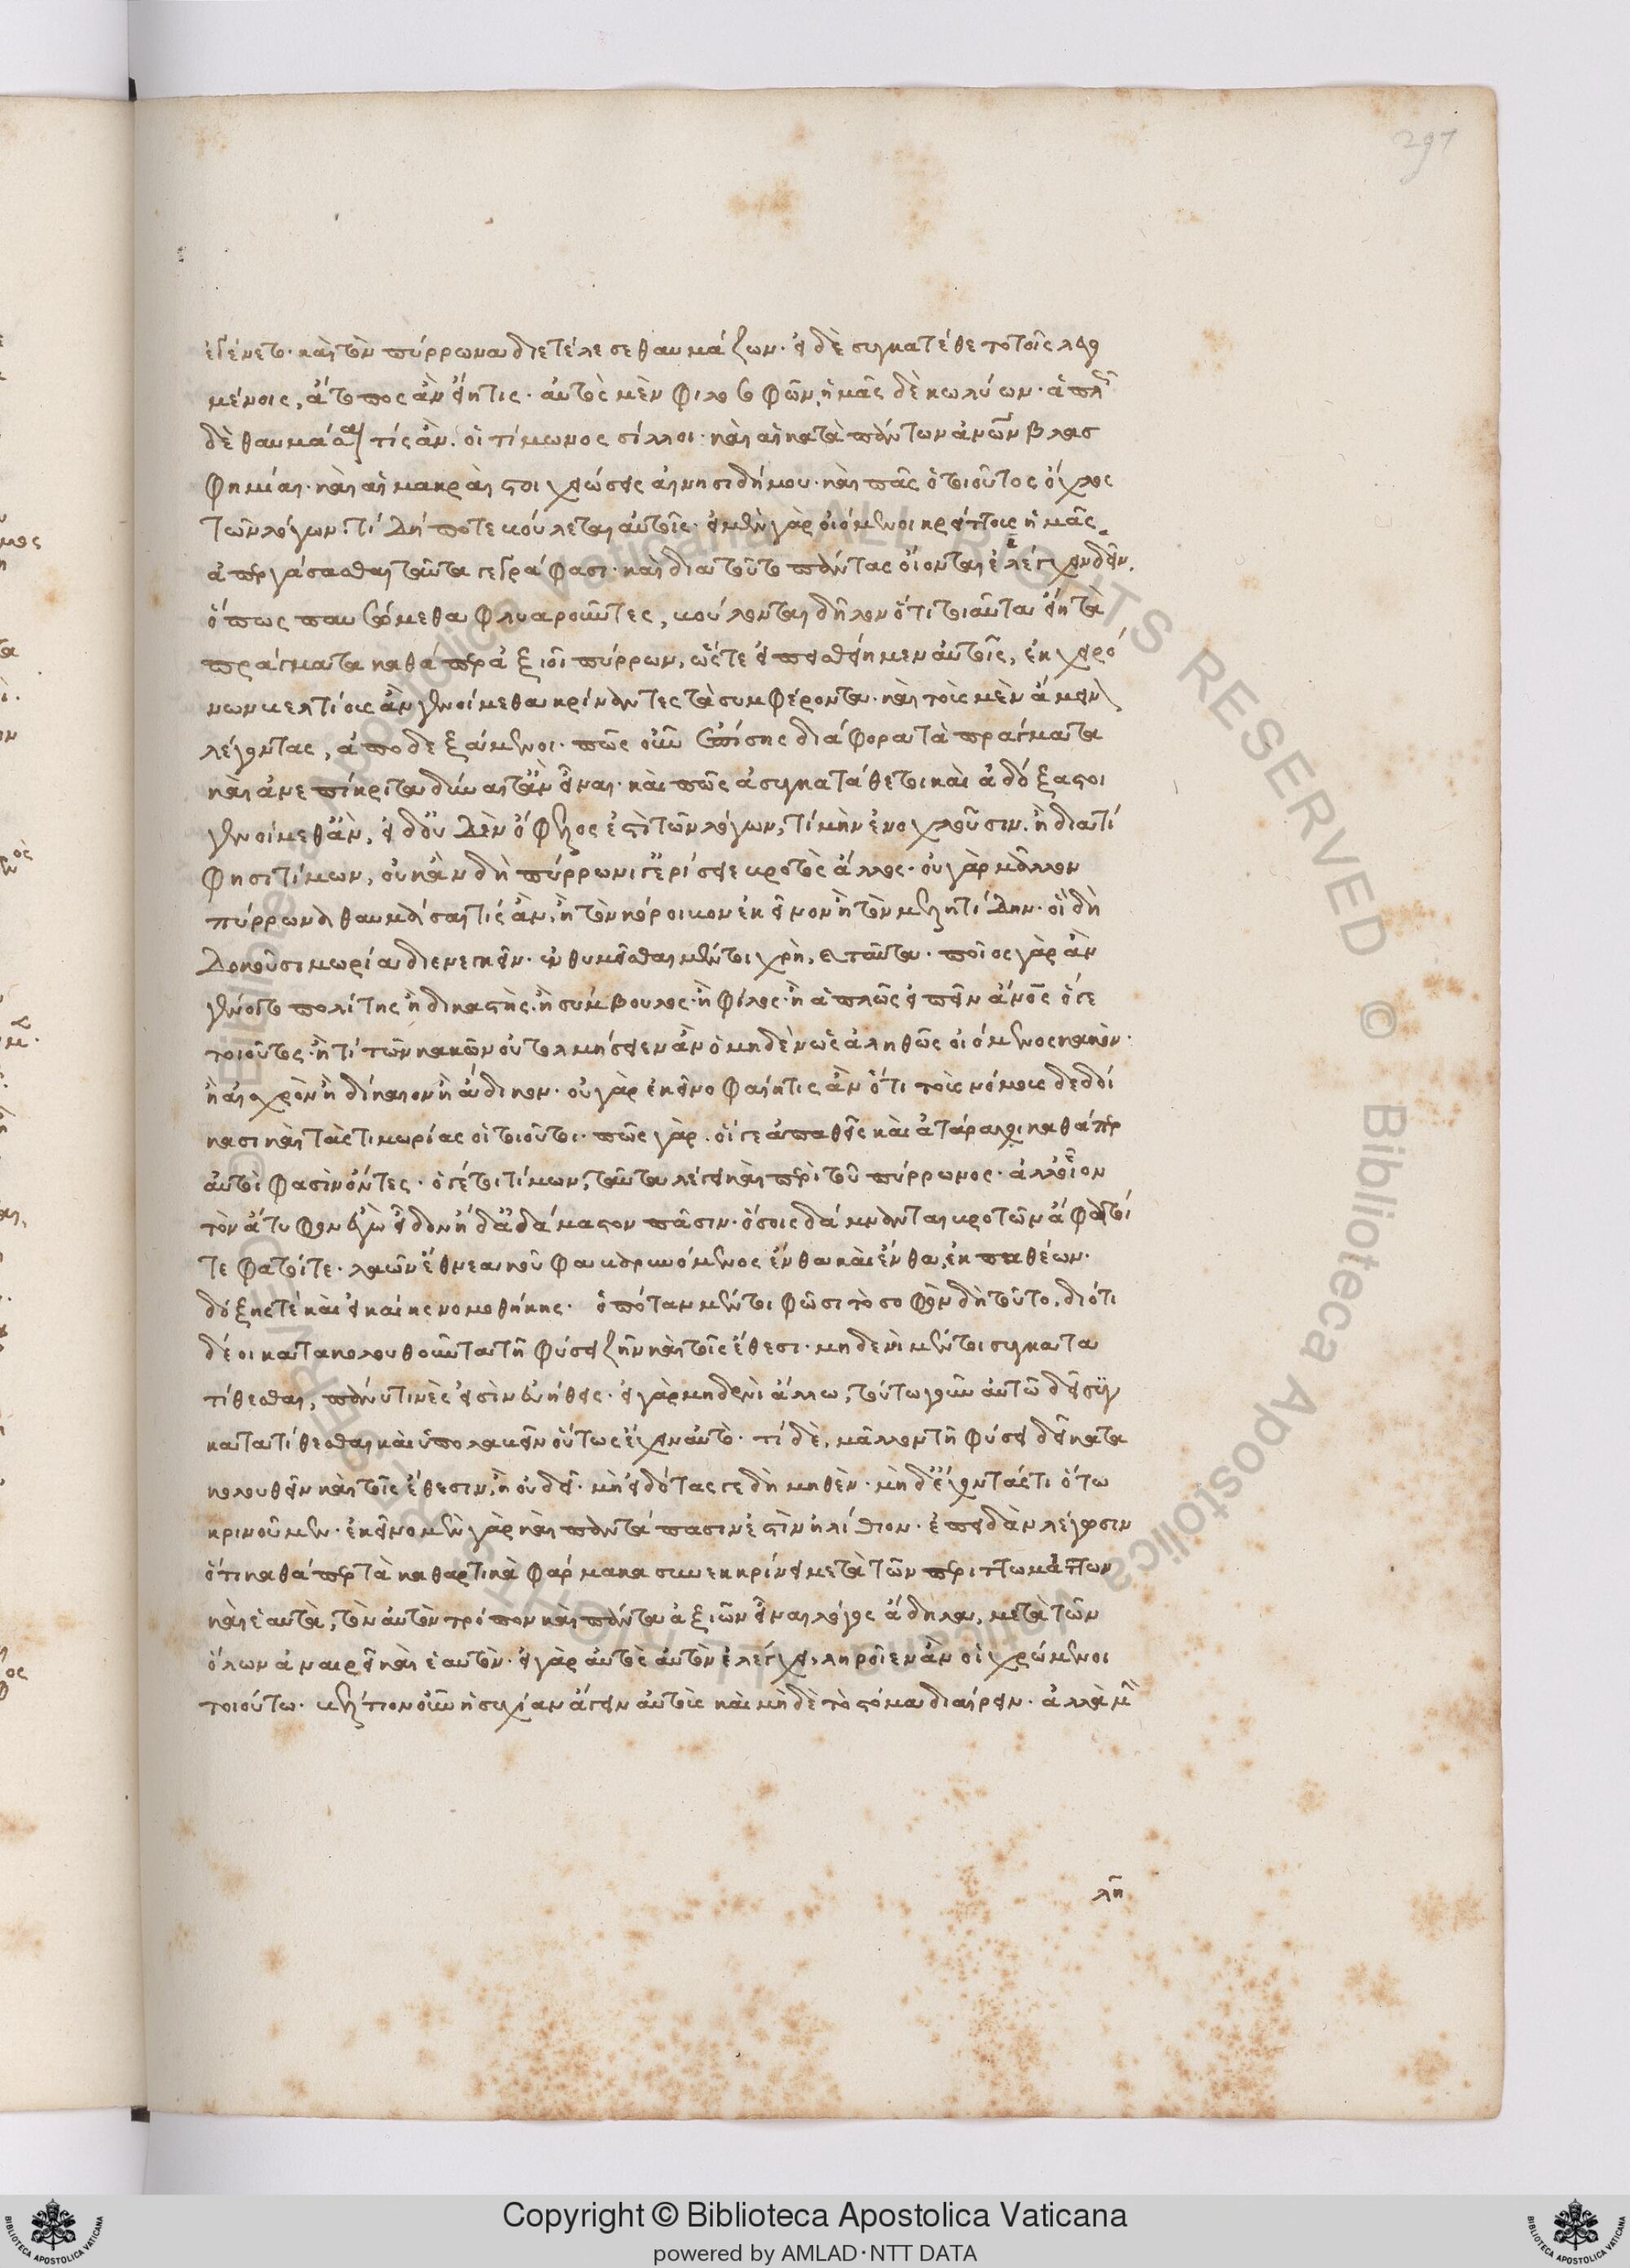 297
ἐγένετο· καὶ τὸν πύρρωνα διετέλεσε θαυμάζων· εἰ δὲ συγκατέθετο τοῖς λεγο
μένοις, ἄτοπος ἂν εἴη τις· αὐτὸς μὲν φιλοσοφῶν, ἡμᾶς δὲ κωλύων· ἁπλῶς
δὲ θαυμάσαι τίς ἄν. οἱ τίμωνος σίλλοι· καὶ αἱ κατὰ πάντων ἀνων βλασ
φημίαι· καὶ αἱ μακραὶ στοιχειώσεις αἰνησιδήμου· καὶ πᾶς ὁ τοιοῦτος ὄχλος
τῶν λόγων· τί δή ποτε βούλεται αὐτοῖς· εἰ μὲν γὰρ οἰόμενοι κρείττους ἡμᾶς
ἀπεργάσασθαι ταῦτα γεγράφασι· καὶ διὰ τοῦτο πάντας οἴονται ἐλέγχειν δεῖν,
ὅπως παυσόμεθα φλυαροῦντες, βούλονται δῆλον ὅτι τοιαῦτα εἴη τὰ
πράγματα καθάπερ ἀξιοῖ πύρρων, ὥστε εἰ πεισθείημεν αὐτοῖς, ἐκ χειρό
νων βελτίους ἂν γενοίμεθα κρίναντες τὰ συμφέροντα· καὶ τοὺς μὲν ἄμεινον
λέγοντας, ἀποδεξάμενοι· πῶς οὖν ἐπίσης διάφορα τὰ πράγματα
καὶ ἀνεπίκριτα δύναιτ' ἂν εἶναι· καὶ πῶς ἀσυγκατάθετοι καὶ ἀδόξαστοι
γενοίμεθ' ἄν, εἰ δ' οὐδὲν ὄφελος ἐστὶ τῶν λόγων, τί μὴν ἐνοχλοῦσιν. ἢ διατί
φησι τίμων, οὐκ ἂν δὴ πύρρωνί γ' ἐρίσειε βροτὸς ἄλλος· οὐ γὰρ μᾶλλον
πύρρωνα θαυμάσαι τίς ἄν, ἢ τὸν κόροιβον ἐκεῖνον ἢ τὸν μελητίδην· οἳ δὴ
δοκοῦσι μωρία διενεγκεῖν· ἐνθυμεῖσθαι μέντοι χρὴ, καὶ ταῦτα· ποῖος γὰρ ἂν
γένοιτο πολίτης ἢ δικαστής· ἢ σύμβουλος· ἢ φίλος· ἢ ἁπλῶς εἰπεῖν ἄνος ὅγε
τοιοῦτος· ἢ τί τῶν κακῶν οὐ τολμήσειεν ἂν ὁ μηδὲν ὡς ἀληθῶς οἰόμενος κακὸν·
ἢ αἰσχρὸν ἢ δίκαιον ἢ ἄδικον· οὐ γὰρ ἐκεῖνο φαίη τις ἂν ὅτι τοὺς νόμους δεδοί
κασι καὶ τὰς τιμωρίας οἱ τοιοῦτοι· πῶς γάρ. οἵγε ἀπαθεῖς καὶ ἀτάραχοι καθάπερ
αὐτοὶ φασὶν ὄντες· ὅγε τοι τίμων, ταῦτα λέγει καὶ περὶ τοῦ πύρρωνος· ἀλλ' οἷον
τὸν ἄτυφον ἐγὼ εἶδον ἠδ' ἀδάμαστον πᾶσιν· ὅσοις δάμνανται βροτῶν ἄφατοί
τε φατοί τε· λαῶν ἔθνεα κοῦφα βαρυνόμενος ἔνθα καὶ ἔνθα, ἐκ παθέων·
δόξης τὲ καὶ εἰκαίης νομοθήκης· ὁπόταν μέντοι φῶσι τὸ σοφὸν δὴ τοῦτο, διότι
δέοι κατακολουθοῦντα τῇ φύσει ζῆν καὶ τοῖς ἔθεσι· μηδενὶ μέντοι συγκατα
τίθεσθαι, πάνυ τινὲς εἰσὶν εὐήθεις· εἰ γὰρ μηδενὶ ἄλλω, τούτω γοῦν αὐτῶ δεῖ συγ
κατατίθεσθαι καὶ ὑπολαβεῖν οὕτως ἔχειν αὐτό· τί δὲ, μᾶλλον τῇ φύσει δεῖ κατα
κολουθεῖν καὶ τοῖς ἔθεσιν, ἢ οὐ δεῖ· μὴ εἰδότας γε δὴ μηθὲν· μὴ δ' ἔχοντάς τι ὅτω
κρινοῦμεν· ἐκεῖνο μὲν γὰρ καὶ παντάπασιν ἐστὶν ἠλίθιον· ἐπειδὰν λέγωσιν
ὅτι καθάπερ τὰ καθαρτικὰ φάρμακα συνεκκρίνει μετὰ τῶν περιττωμάτων
καὶ ἑαυτὰ, τὸν αὐτὸν τρόπον καὶ πάντα ἀξιῶν εἶναι λόγος ἄδηλα, μετὰ τῶν
ὅλων ἀναιρεῖ καὶ ἑαυτὸν· εἰ γὰρ αὐτὸς αὐτὸν ἐλέγχει, ληροῖεν ἂν οἱ χρώμενοι
τοιούτω· βέλτιον οὖν ἡσυχίαν ἄγειν αὐτοὺς καὶ μὴ δὲ τὸ στόμα διαίρειν· ἀλλὰ μὴν
λη